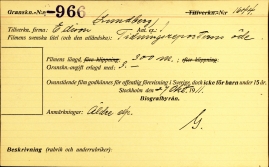 Granskn.-Nr 966 Tillverkn.-Nr 1644.
Lundberg
Tillverkare, firma: Edison
Filmens svenska titel och den utländska: Tidningsreporterns öde.
Filmens längd, före klippning, 300 m.
efter klippning,
Granskn.-avgift erlagd med: 3:-
Ovanstående film godkännes för offentlig förevisning i Sverige, dock icke för barn under 15 år.
Stockholm den 27 Okt. 1911.
Biografbyrån.
Anmärkningar: Äldre
G.
Beskrivning (rubrik och underrubriker)